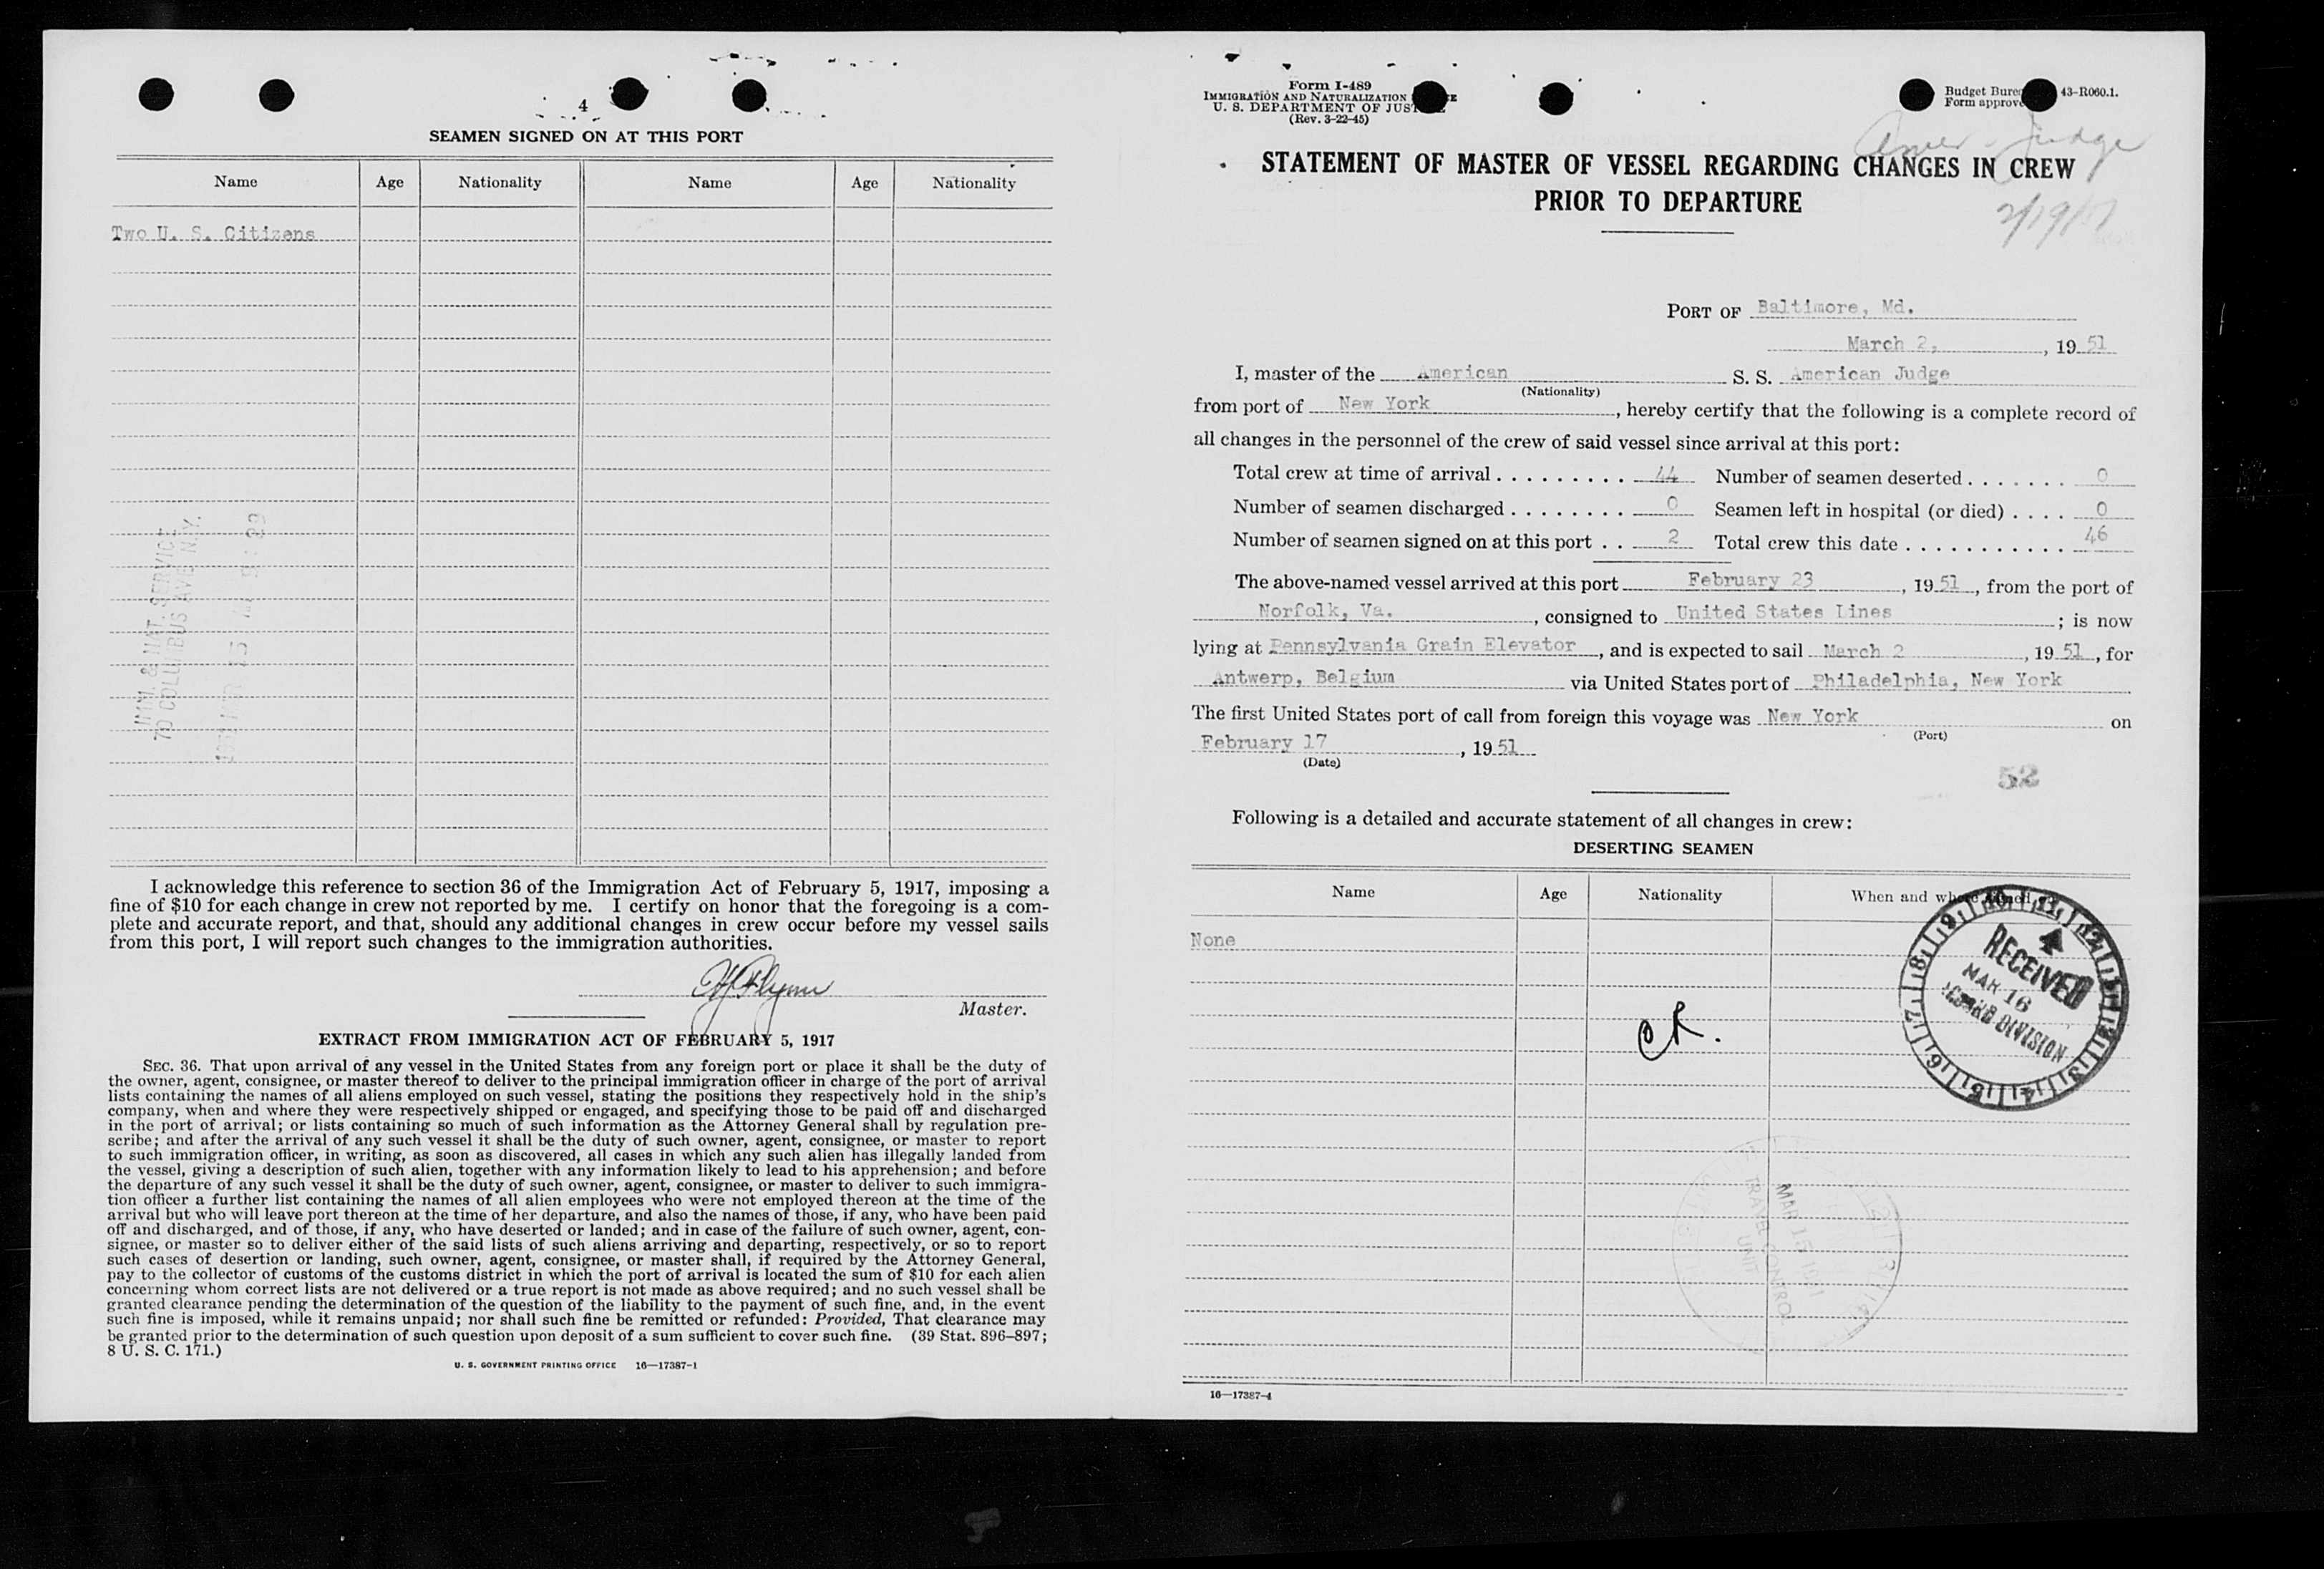 4
SEAMEN SIGNED ON AT THIS PORT
Name Age Nationality Name Age Nationality
Two U. S. Citizens
IMM. & NAT. SERVICE
70 COLUMBUS AVE N.Y.
I acknowledge this reference to section 36 of the Immigration Act of February 5, 1917, imposing a
fine of $10 for each change in crew not reported by me. I certify on honor that the foregoing is a com-
plete and accurate report, and that, should any additional changes in crew occur before my vessel sails
from this port, I will report such changes to the immigration authorities.
Flynn
Master.
EXTRACT FROM IMMIGRATION ACT OF FEBRUARY 5, 1917
SEC. 36. That upon arrival of any vessel in the United States from any foreign port or place it shall be the duty of
the owner, agent, consignee, or master thereof to deliver to the principal immigration officer in charge of the port of arrival
lists containing the names of all aliens employed on such vessel, stating the positions they respectively hold in the ship's
company, when and where they were respectively shipped or engaged, and specifying those to be paid off and discharged
in the port of arrival; or lists containing so much of such information as the Attorney General shall by regulation pre-
scribe; and after the arrival of any such vessel it shall be the duty of such owner, agent, consignee, or master to report
to such immigration officer, in writing, as soon as discovered, all cases in which any such alien has illegally landed from
the vessel, giving a description of such alien, together with any information likely to lead to his apprehension; and before
the departure of any such vessel it shall be the duty of such owner, agent, consignee, or master to deliver to such immigra-
tion officer a further list containing the names of all alien employees who were not employed thereon at the time of the
arrival but who will leave port thereon at the time of her departure, and also the names of those, if any, who have been paid
off and discharged, and of those, if any, who have deserted or landed; and in case of the failure of such owner, agent, con-
signee, or master so to deliver either of the said lists of such aliens arriving and departing, respectively, or so to report
such cases of desertion or landing, such owner, agent, consignee, or master shall, if required by the Attorney General,
pay to the collector of customs of the customs district in which the port of arrival is located the sum of $10 for each alien
concerning whom correct lists are not delivered or a true report is not made as above required; and no such vessel shall be
granted clearance pending the determination of the question of the liability to the payment of such fine, and, in the event
such fine is imposed, while it remains unpaid; nor shall such fine be remitted or refunded: Provided, That clearance may
be granted prior to the determination of such question upon deposit of a sum sufficient to cover such fine. (39 Stat. 896–897;
8 U. S. C. 171.)
U. S. GOVERNMENT PRINTING OFFICE 16—17387-1
Form I-489
IMMIGRATION AND NATURALIZATION
U. S. DEPARTMENT OF JUS
(Rev. 3-22-45)
Budget Bure 43-R060.1.
Form approve
Amer. Judge
2/19/51
STATEMENT OF MASTER OF VESSEL REGARDING CHANGES IN CREW
PRIOR TO DEPARTURE
PORT OF Baltimore, Md.
March 2, , 19 51
I, master of the American S. S. American Judge
(Nationality)
from port of New York , hereby certify that the following is a complete record of
all changes in the personnel of the crew of said vessel since arrival at this port:
Total crew at time of arrival . . . . . . . . . 44 Number of seamen deserted . . . . . . . 0
Number of seamen discharged . . . . . . . . 0 Seamen left in hospital (or died) . . . . 0
Number of seamen signed on at this port . . 2 Total crew this date . . . . . . . . . . . 46
The above-named vessel arrived at this port February 23 , 19 51 , from the port of
Norfolk, Va. , consigned to United States Lines ; is now
lying at Pennsylvania Grain Elevator , and is expected to sail March 2 , 19 51 , for
Antwerp, Belgium via United States port of Philadelphia, New York
The first United States port of call from foreign this voyage was New York on
(Port)
February 17 , 19 51
(Date)
52
Following is a detailed and accurate statement of all changes in crew:
DESERTING SEAMEN
Name Age Nationality When and
None
RECEIVED
MAR 16
RECORD DIVISION
OK.
MAR 15 1951
TRAVEL CONTROL
UNIT
16—17387-4